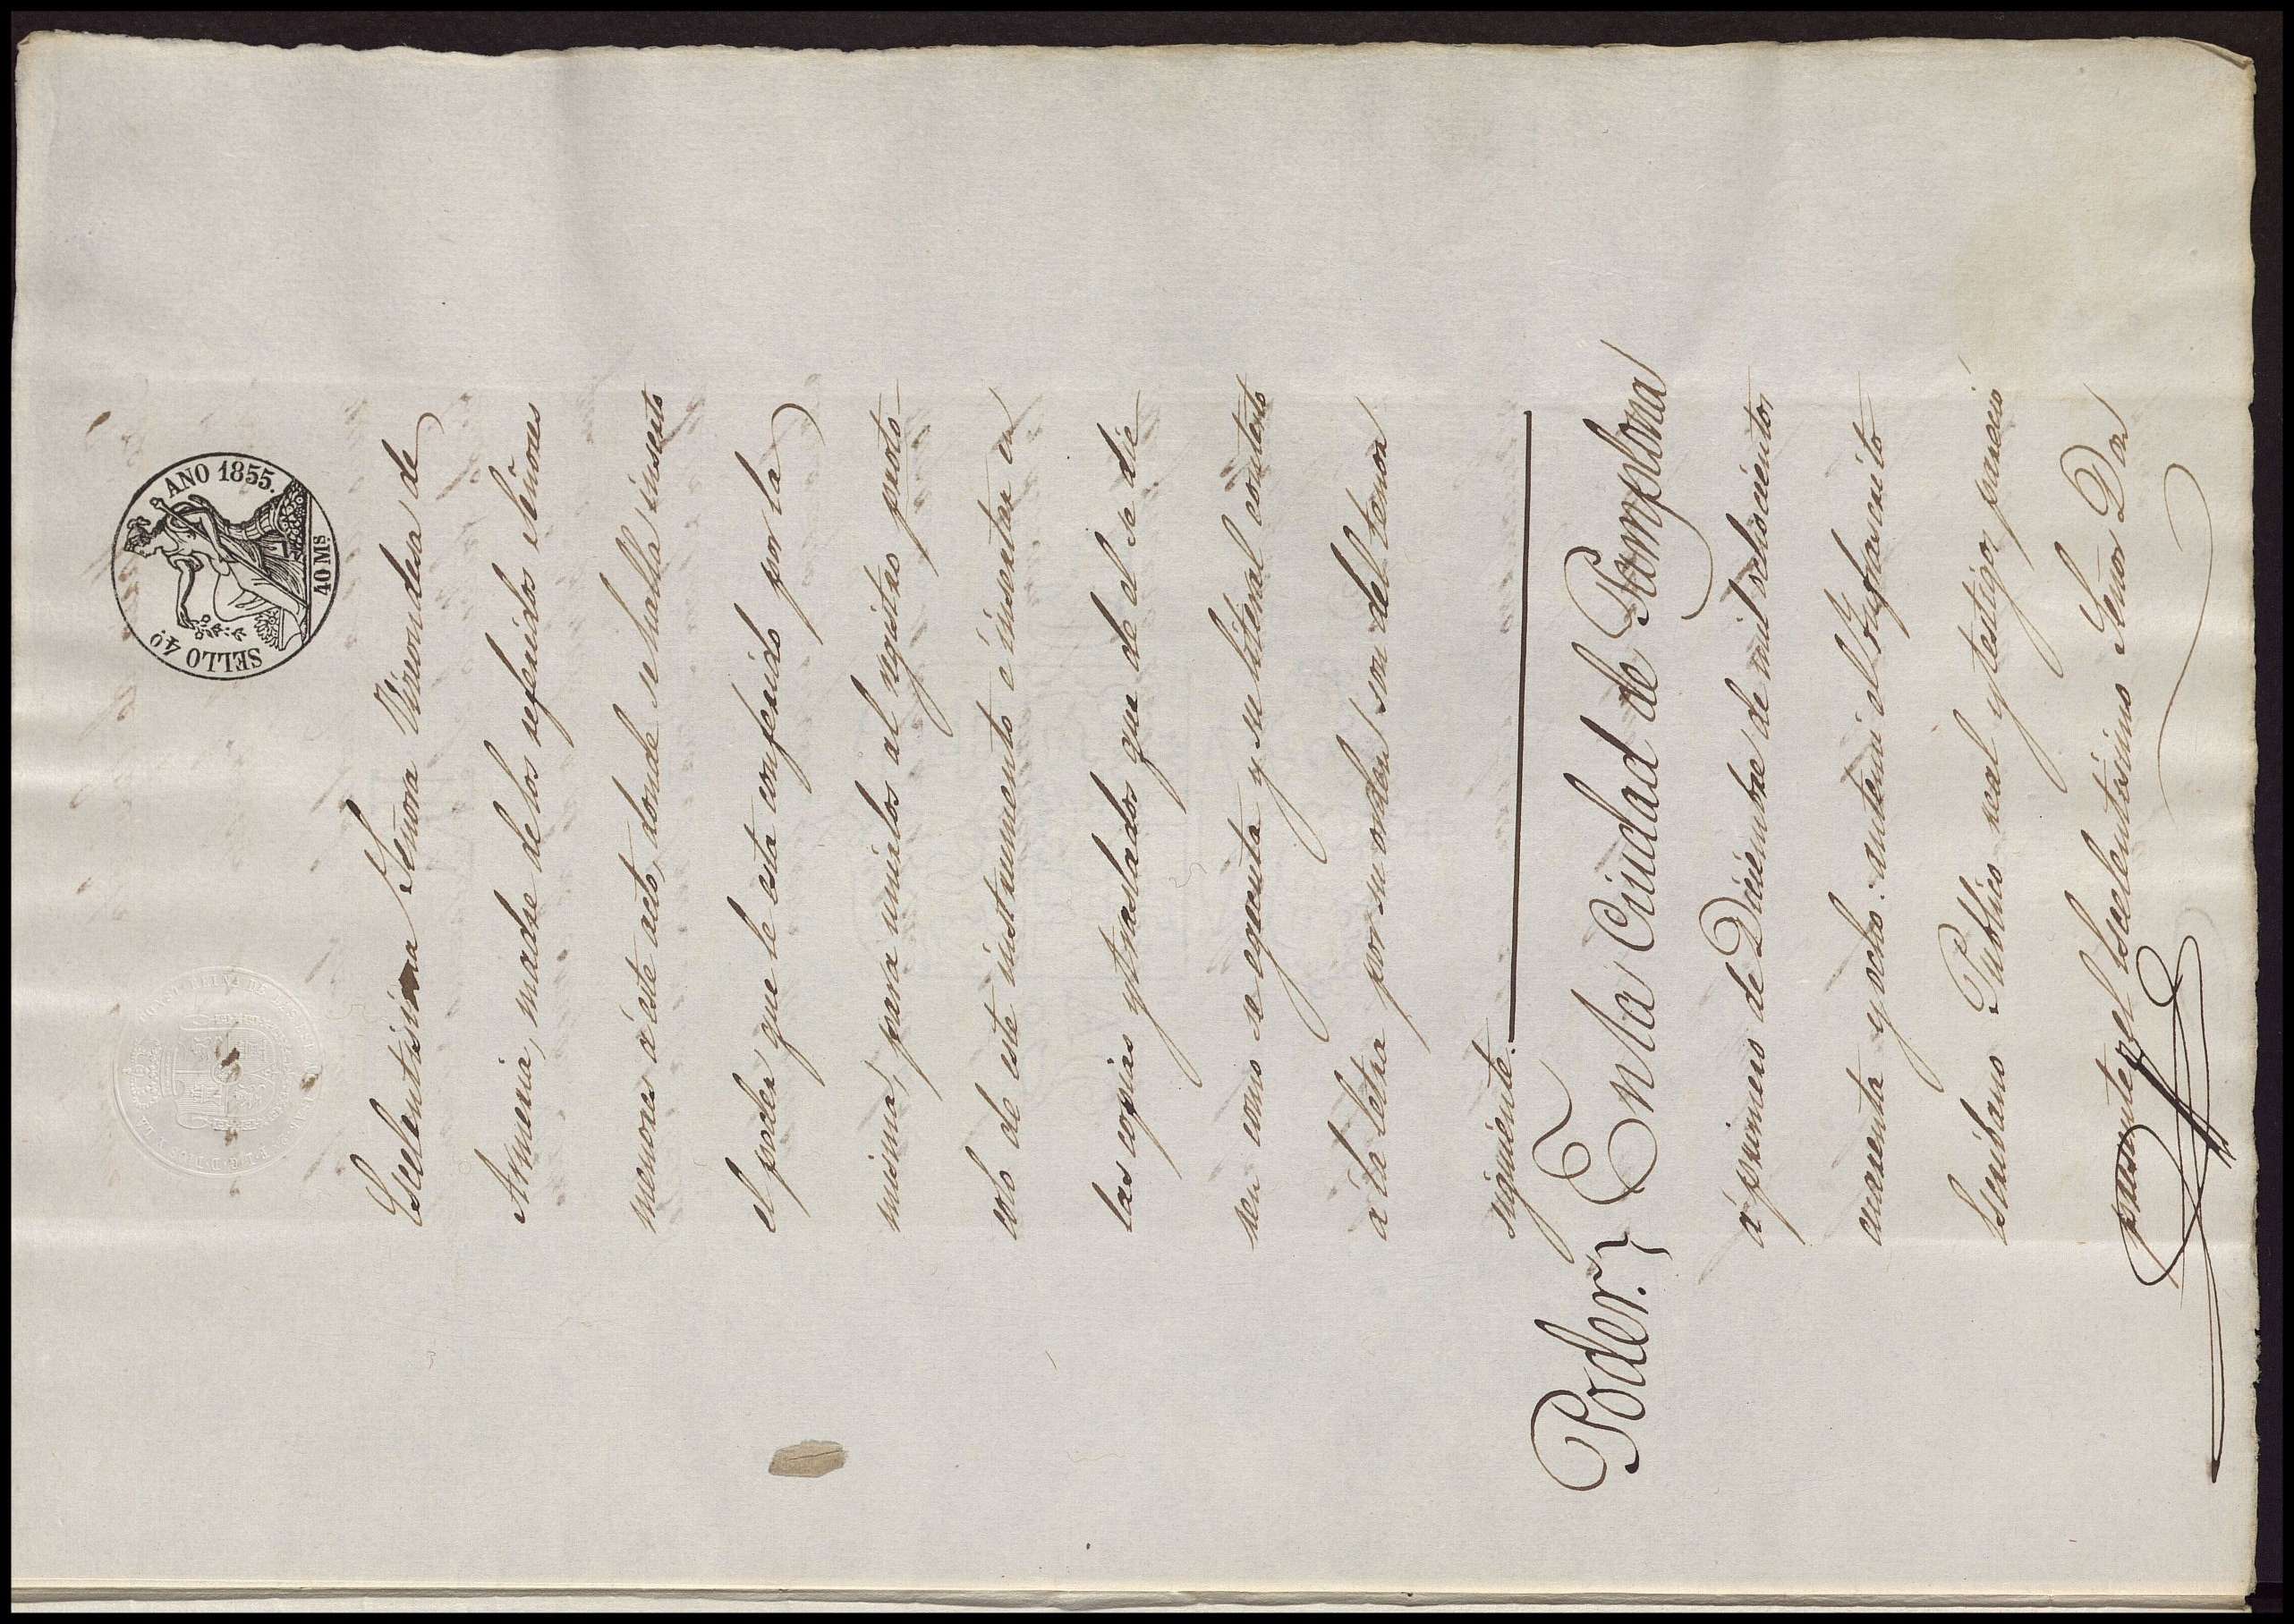 SELLO 4º AÑO 1855.
40 Ms
Escelentisima Señora Vizcondesa de
Armeria, madre de los referidos Señores
menores á éste acto, donde se halla inserto
el poder que le esta conferido por la
misma, para unirlos al registro proto-
colo de este instrumento é insertar en
las copias y traslados que de el se die
sen como se egecuta y su literal contesto
á la letra por su orden son del tenor
siguiente.
Poder. En la Ciudad de Pamplona
á primero de Diciembre de mil ochocientos
cuarenta y ocho: ante mi el Infrascrito
Escribano Publico real y testigos parecio
presente el Escelentisimo Señor Don